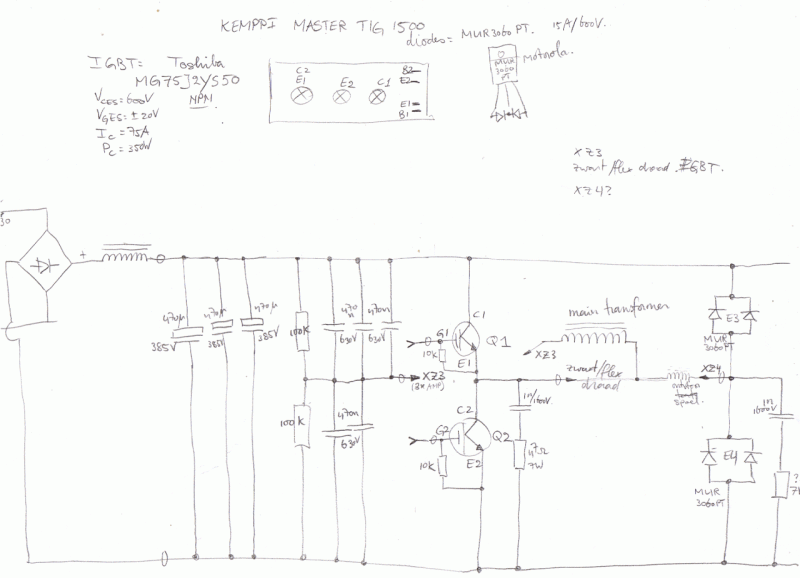 KEMPPI MASTER TIG 1500
diodes = MUR3060PT. 15A/600V.
IGBT: Toshiba
MG75J2YS50
VCES = 600V NPN
VGES = ± 20V
IC = 75A
PC = 350W
C2
E1
E2
C1
B2
E2
E1
B1
MUR
3060
PT
Motorola.
XZ3
zwart/flex draad. IGBT.
XZ4?
30
+
470µ
385V
470µ
385V
470µ
385V
100K
100K
470
n
630V
470n
630V
470n
630V
XZ3
(3x AMP)
G1
10K
C1
Q1
E1
G2
10K
C2
Q2
E2
1n/1600V
47Ω
7W
main transformer
XZ3
zwart/flex
draad
spoel
XZ4
E3
MUR
3060PT
E4
MUR
3060PT
1n
1600V
?
7W